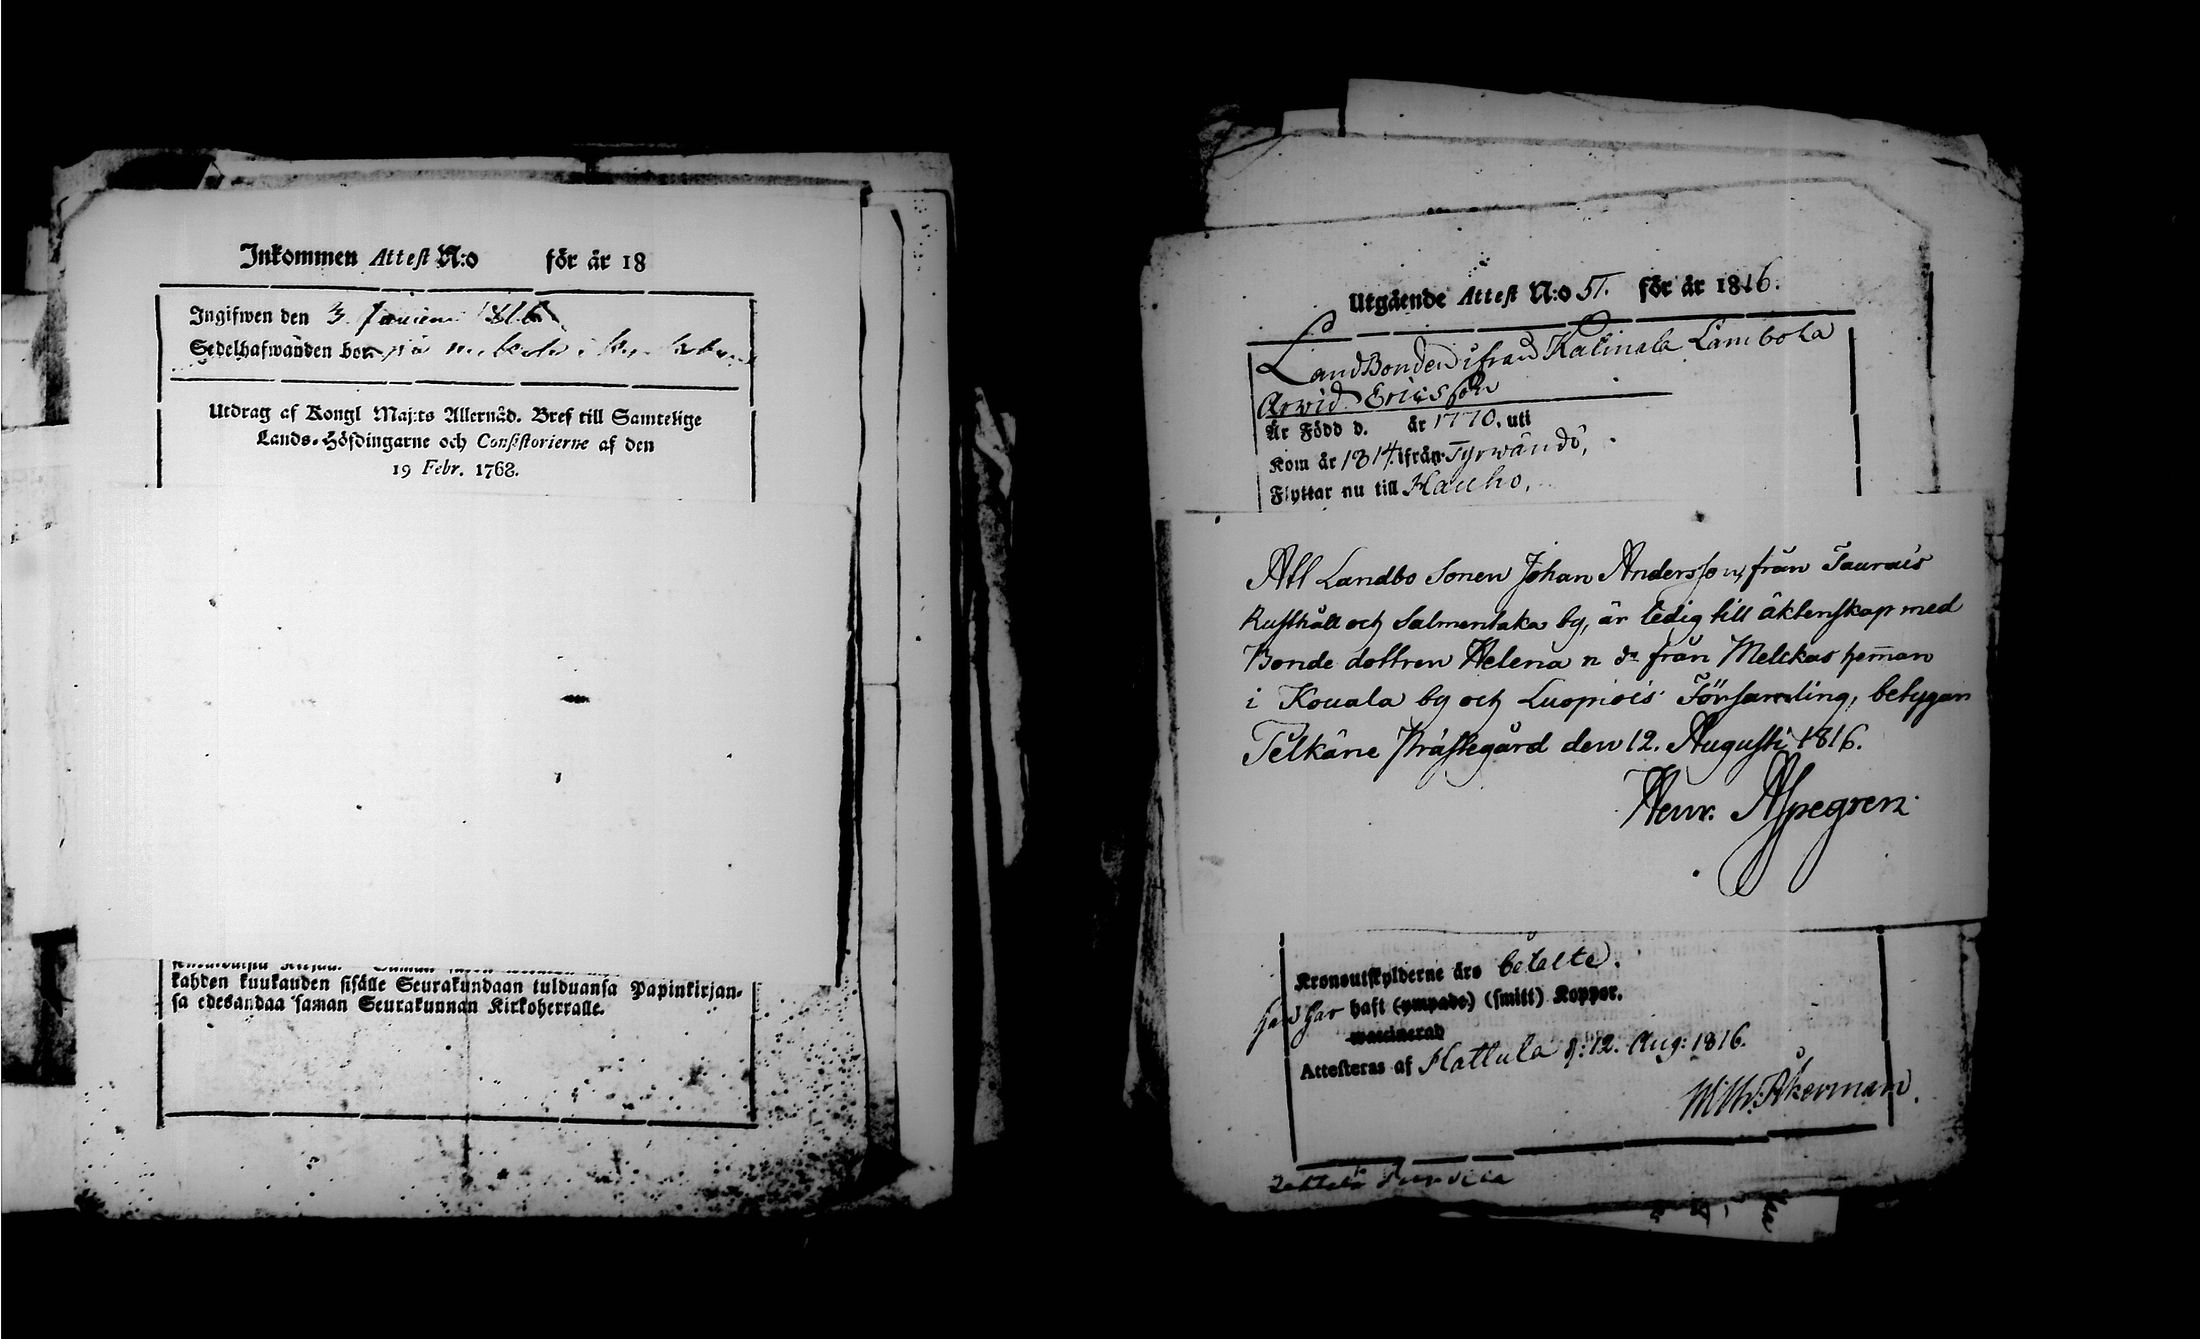 Inkommen Attest N:o för år 18
Ingifwen den 3 1816
Sedelhafwanden bor på
Utdrag af Kongl Maj:ts Allernåd. Bref till Samtelige
Lands-Höfdingarne och Consistorierne af den
19 Febr. 1768.
kahden kuukauden sisälle Seurakundaan tulduansa Papinkirjan-
sa edesandaa saman Seurakunnan Kirkoherralle.
Utgående Attest N:o 51. för år 1816.
LandBonden ifrån Katinala Lambola
Arwid Ericsson
Är Född d. år 1770. uti
Kom år 1814. ifrån Tyrwändö,
Flyttar nu till Hauho,
Att Landbo Sonen Johan Andersson, från Taurais
Rusthåll och Salmentaka by, är ledig till äktenskap med
Bonde dottren Helena n dr från Melckas heman
i Kouala by och Luopiois Församling, betygar
Pelkäne Prästegård den 12. Augusti 1816.
Henr. Aspegren
Kronoutskylderne äro betalte.
han har haft (ympade) (smitt) Koppor.
waccinerad
Attesteras af Hattula d: 12. Aug: 1816.
Åkerman.